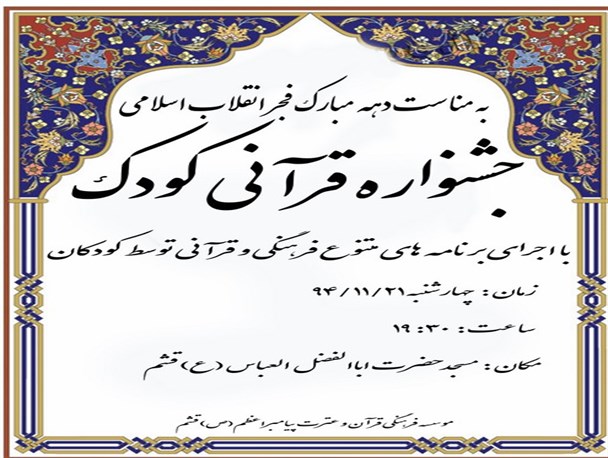 به مناسبت دهه مبارک فجر انقلاب اسلامی
جشنواره قرآنی کودک
با اجرای برنامه های متنوع فرهنگی و قرآنی توسط کودکان
زمان: چهارشنبه ۹۴/۱۱/۲۱
ساعت: ۱۹:۳۰
مکان: مسجد حضرت اباالفضل العباس (ع) قشم
موسسه فرهنگی قرآن و عترت پیامبر اعظم (ص) قشم